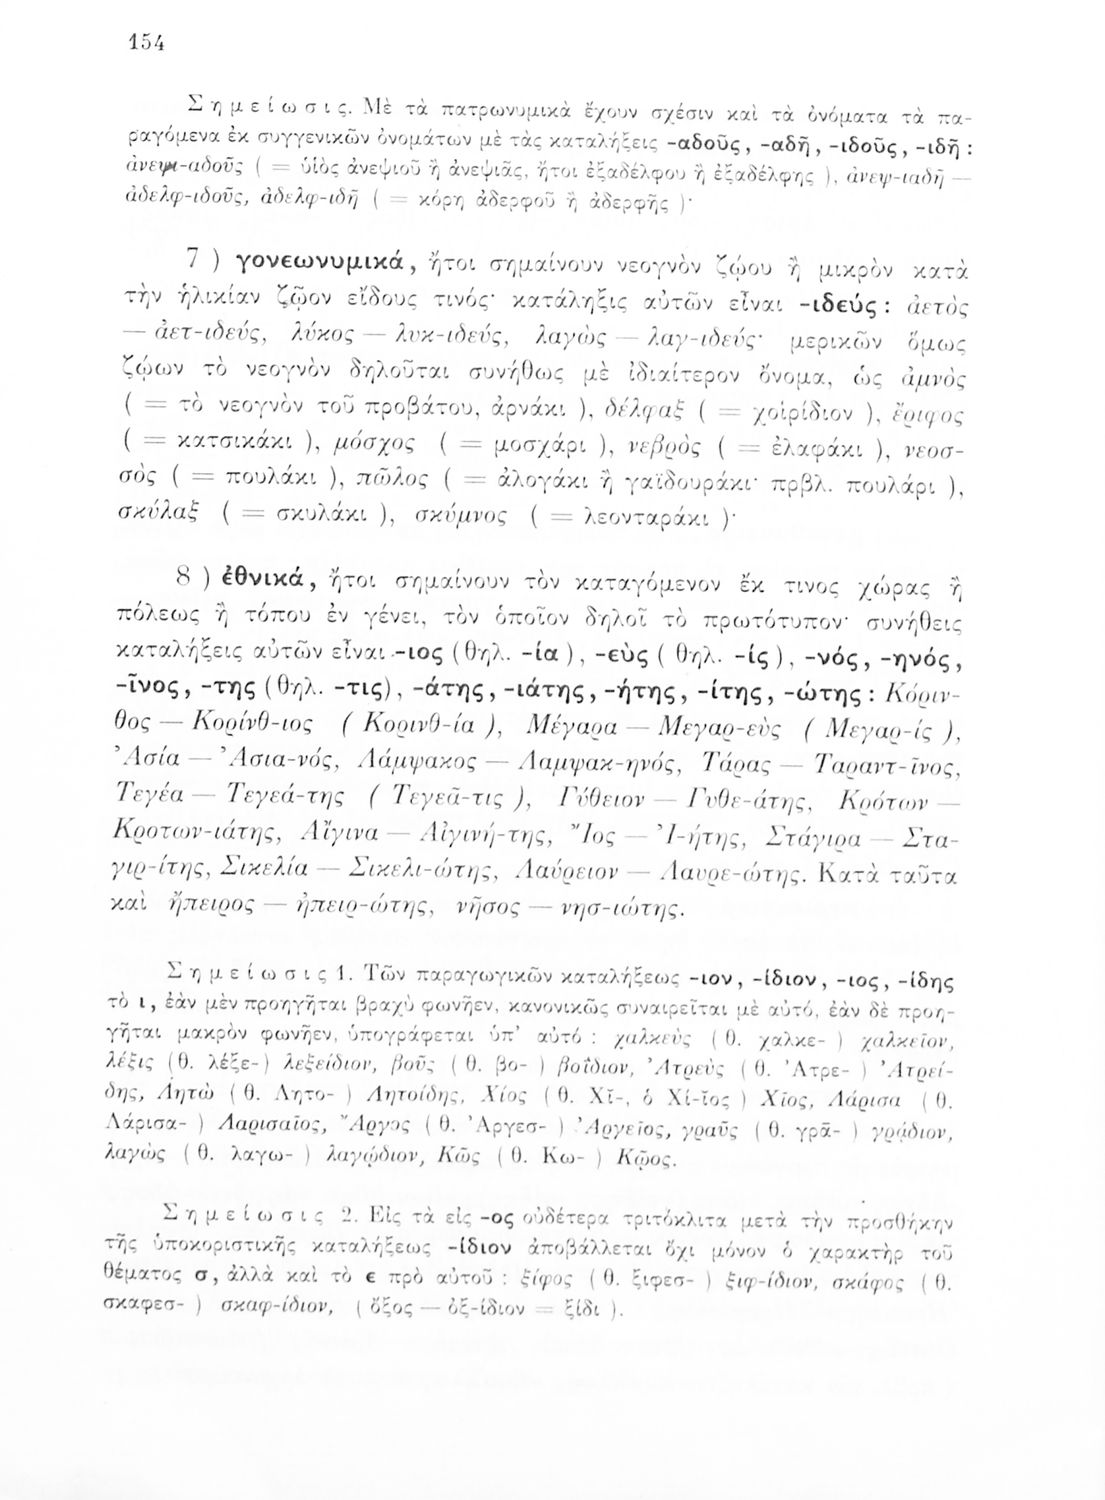 154
Σημείωσις. Μὲ τὰ πατρωνυμικὰ ἔχουν σχέσιν καὶ τὰ ὀνόματα τὰ πα-
ραγόμενα ἐκ συγγενικῶν ὀνομάτων μὲ τὰς καταλήξεις -αδοῦς, -αδῆ, -ιδοῦς, -ιδῆ :
ἀνεψι-αδοῦς ( = υἱὸς ἀνεψιοῦ ἢ ἀνεψιᾶς, ἤτοι ἐξαδέλφου ἢ ἐξαδέλφης ), ἀνεψ-ιαδῆ —
ἀδελφ-ιδοῦς, ἀδελφ-ιδῆ ( = κόρη ἀδερφοῦ ἢ ἀδερφῆς )·
7 ) γονεωνυμικά, ἤτοι σημαίνουν νεογνὸν ζῴου ἢ μικρὸν κατὰ
τὴν ἡλικίαν ζῷον εἴδους τινός· κατάληξις αὐτῶν εἶναι -ιδεύς : ἀετὸς
— ἀετ-ιδεύς, λύκος — λυκ-ιδεύς, λαγὼς — λαγ-ιδεύς· μερικῶν ὅμως
ζῴων τὸ νεογνὸν δηλοῦται συνήθως μὲ ἰδιαίτερον ὄνομα, ὡς ἀμνὸς
( = τὸ νεογνὸν τοῦ προβάτου, ἀρνάκι ), δέλφαξ ( = χοιρίδιον ), ἔριφος
( = κατσικάκι ), μόσχος ( = μοσχάρι ), νεβρὸς ( = ἐλαφάκι ), νεοσ-
σὸς ( = πουλάκι ), πῶλος ( = ἀλογάκι ἢ γαϊδουράκι· πρβλ. πουλάρι ),
σκύλαξ ( = σκυλάκι ), σκύμνος ( = λεονταράκι )·
8 ) ἐθνικά, ἤτοι σημαίνουν τὸν καταγόμενον ἔκ τινος χώρας ἢ
πόλεως ἢ τόπου ἐν γένει, τὸν ὁποῖον δηλοῖ τὸ πρωτότυπον· συνήθεις
καταλήξεις αὐτῶν εἶναι -ιος (θηλ. -ία ), -εὺς ( θηλ. -ίς ), -νός, -ηνός,
-ῖνος, -της (θηλ. -τις), -άτης, -ιάτης, -ήτης, -ίτης, -ώτης : Κόριν-
θος — Κορίνθ-ιος ( Κορινθ-ία ), Μέγαρα — Μεγαρ-εὺς ( Μεγαρ-ίς ),
Ἀσία — Ἀσια-νός, Λάμψακος — Λαμψακ-ηνός, Τάρας — Ταραντ-ῖνος,
Τεγέα — Τεγεά-της ( Τεγεᾶ-τις ), Γύθειον — Γυθε-άτης, Κρότων —
Κροτων-ιάτης, Αἴγινα — Αἰγινή-της, Ἴος — Ἰ-ήτης, Στάγιρα — Στα-
γιρ-ίτης, Σικελία — Σικελι-ώτης, Λαύρειον — Λαυρε-ώτης. Κατὰ ταῦτα
καὶ ἤπειρος — ἠπειρ-ώτης, νῆσος — νησ-ιώτης.
Σημείωσις 1. Τῶν παραγωγικῶν καταλήξεως -ιον, -ίδιον, -ιος, -ίδης
τὸ ι, ἐὰν μὲν προηγῆται βραχὺ φωνῆεν, κανονικῶς συναιρεῖται μὲ αὐτό, ἐὰν δὲ προη-
γῆται μακρὸν φωνῆεν, ὑπογράφεται ὑπ’ αὐτό : χαλκεὺς ( θ. χαλκε- ) χαλκεῖον,
λέξις (θ. λέξε-) λεξείδιον, βοῦς ( θ. βο- ) βοΐδιον, Ἀτρεὺς ( θ. Ἀτρε- ) Ἀτρεί-
δης, Λητὼ ( θ. Λητο- ) Λητοίδης, Χίος ( θ. Χῐ-, ὁ Χί-ῐος ) Χῖος, Λάρισα ( θ.
Λάρισα- ) Λαρισαῖος, Ἄργος ( θ. Ἀργεσ- ) Ἀργεῖος, γραῦς ( θ. γρᾶ- ) γρᾴδιον,
λαγὼς ( θ. λαγω- ) λαγῴδιον, Κῶς ( θ. Κω- ) Κῷος.
Σημείωσις 2. Εἰς τὰ εἰς -ος οὐδέτερα τριτόκλιτα μετὰ τὴν προσθήκην
τῆς ὑποκοριστικῆς καταλήξεως -ίδιον ἀποβάλλεται ὄχι μόνον ὁ χαρακτὴρ τοῦ
θέματος σ, ἀλλὰ καὶ τὸ ε πρὸ αὐτοῦ : ξίφος ( θ. ξιφεσ- ) ξιφ-ίδιον, σκάφος ( θ.
σκαφεσ- ) σκαφ-ίδιον, ( ὄξος — ὀξ-ίδιον = ξίδι ).